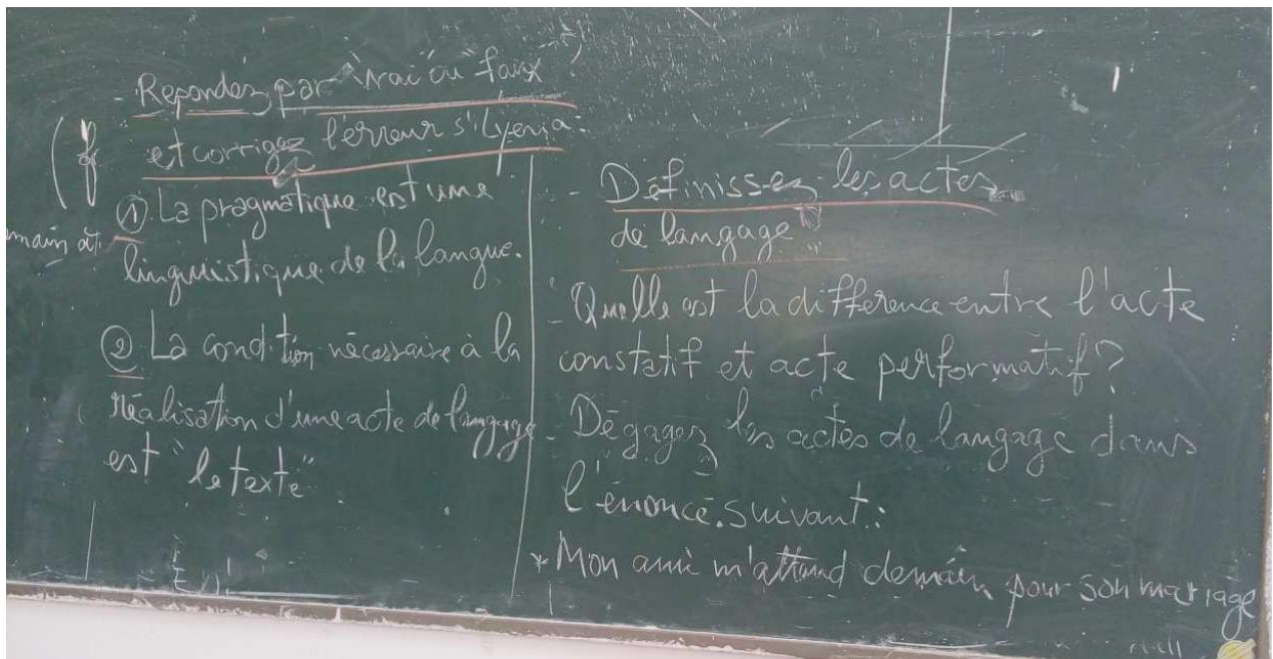 - Repondez par "vrai" ou "faux"
et corrigez l'érreur s'il y en a:
① La pragmatique est une
linguistique de la langue.
② La condition nécessaire à la
réalisation d'une acte de langage
est "le texte"
- Définissez les actes
de langage
- Quelle est la difference entre l'acte
constatif et acte performatif?
- Dégagez les actes de langage dans
l'énoncé suivant:
* Mon ami m'attend demain pour son mariage